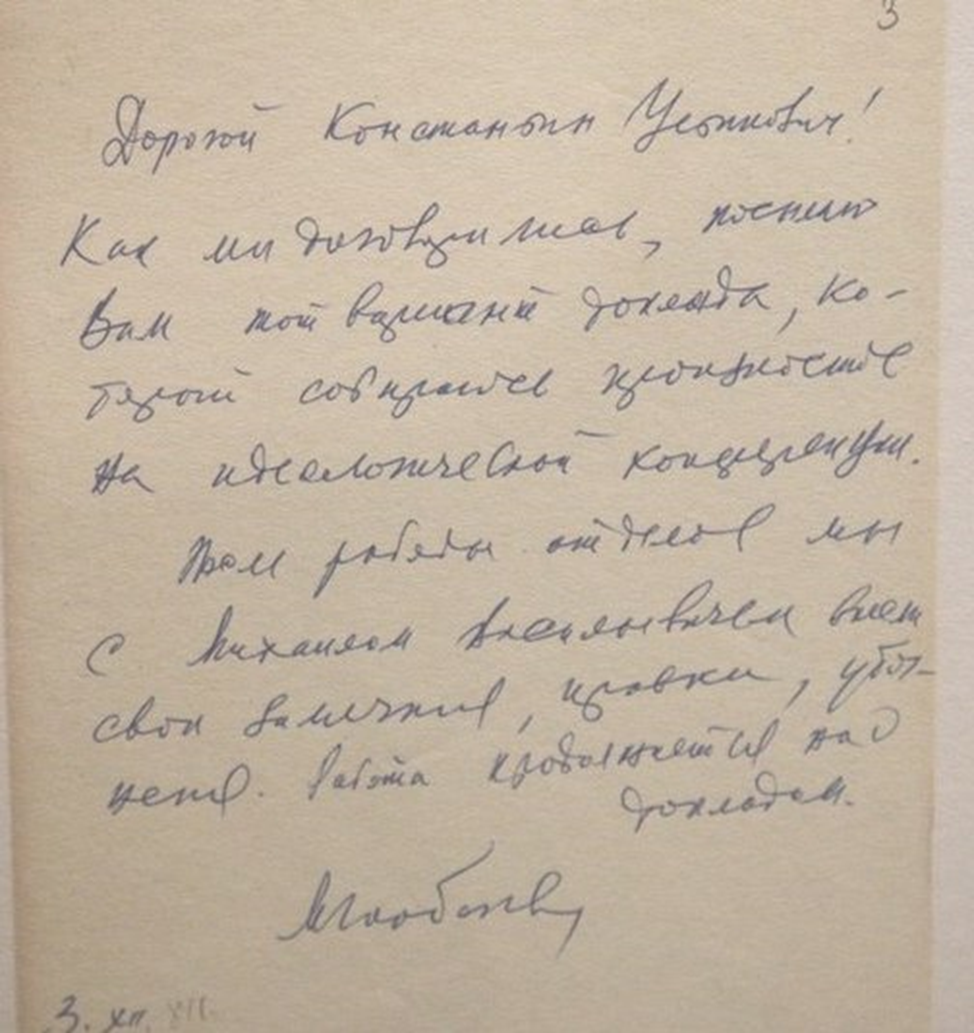 3
Дорогой Константин Устинович!
Как мы договорились, посылаю
Вам тот вариант доклада, ко-
торый собираюсь произнести
на идеологической конференции.
работы отделов мы
с Михаилом Васильевичем внесем
свои замечания, правки, уточ-
нения. Работа продолжается над
докладом.
МГорбачев
3. XII. XII.